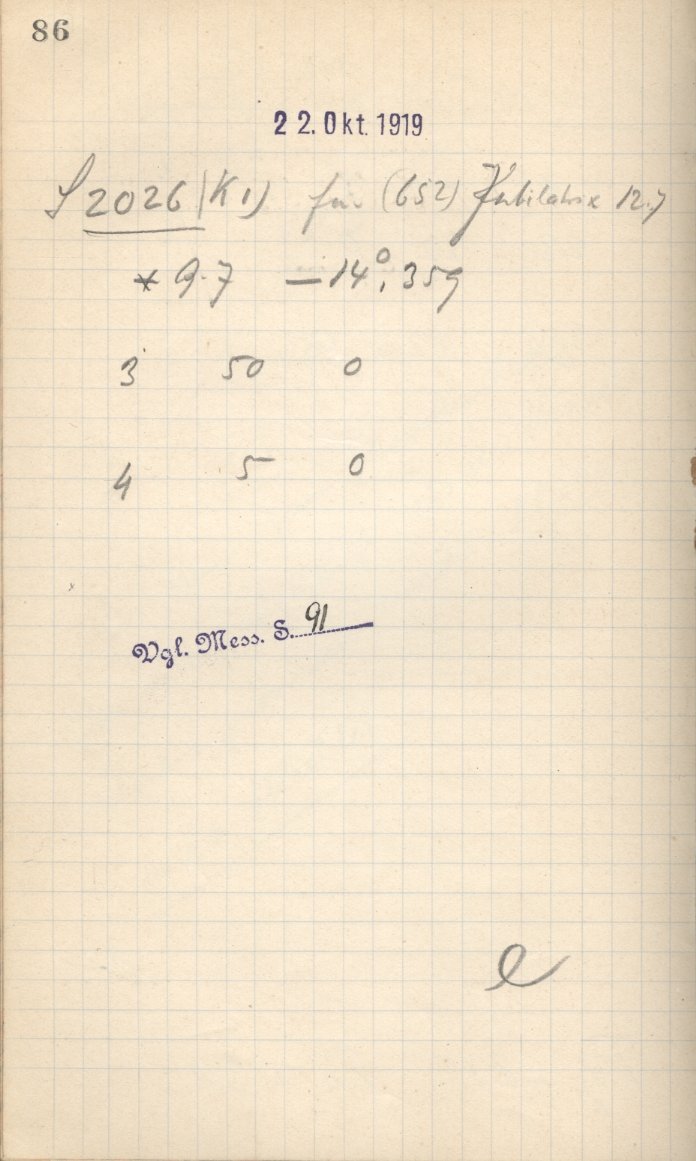 86
22. Okt. 1919
S 2026 (K1) für (652) Jubilatrix 12.7
* 9.7 — 14°,359
3 50 0
4 5 0
Vgl. Mess. S. 91
e